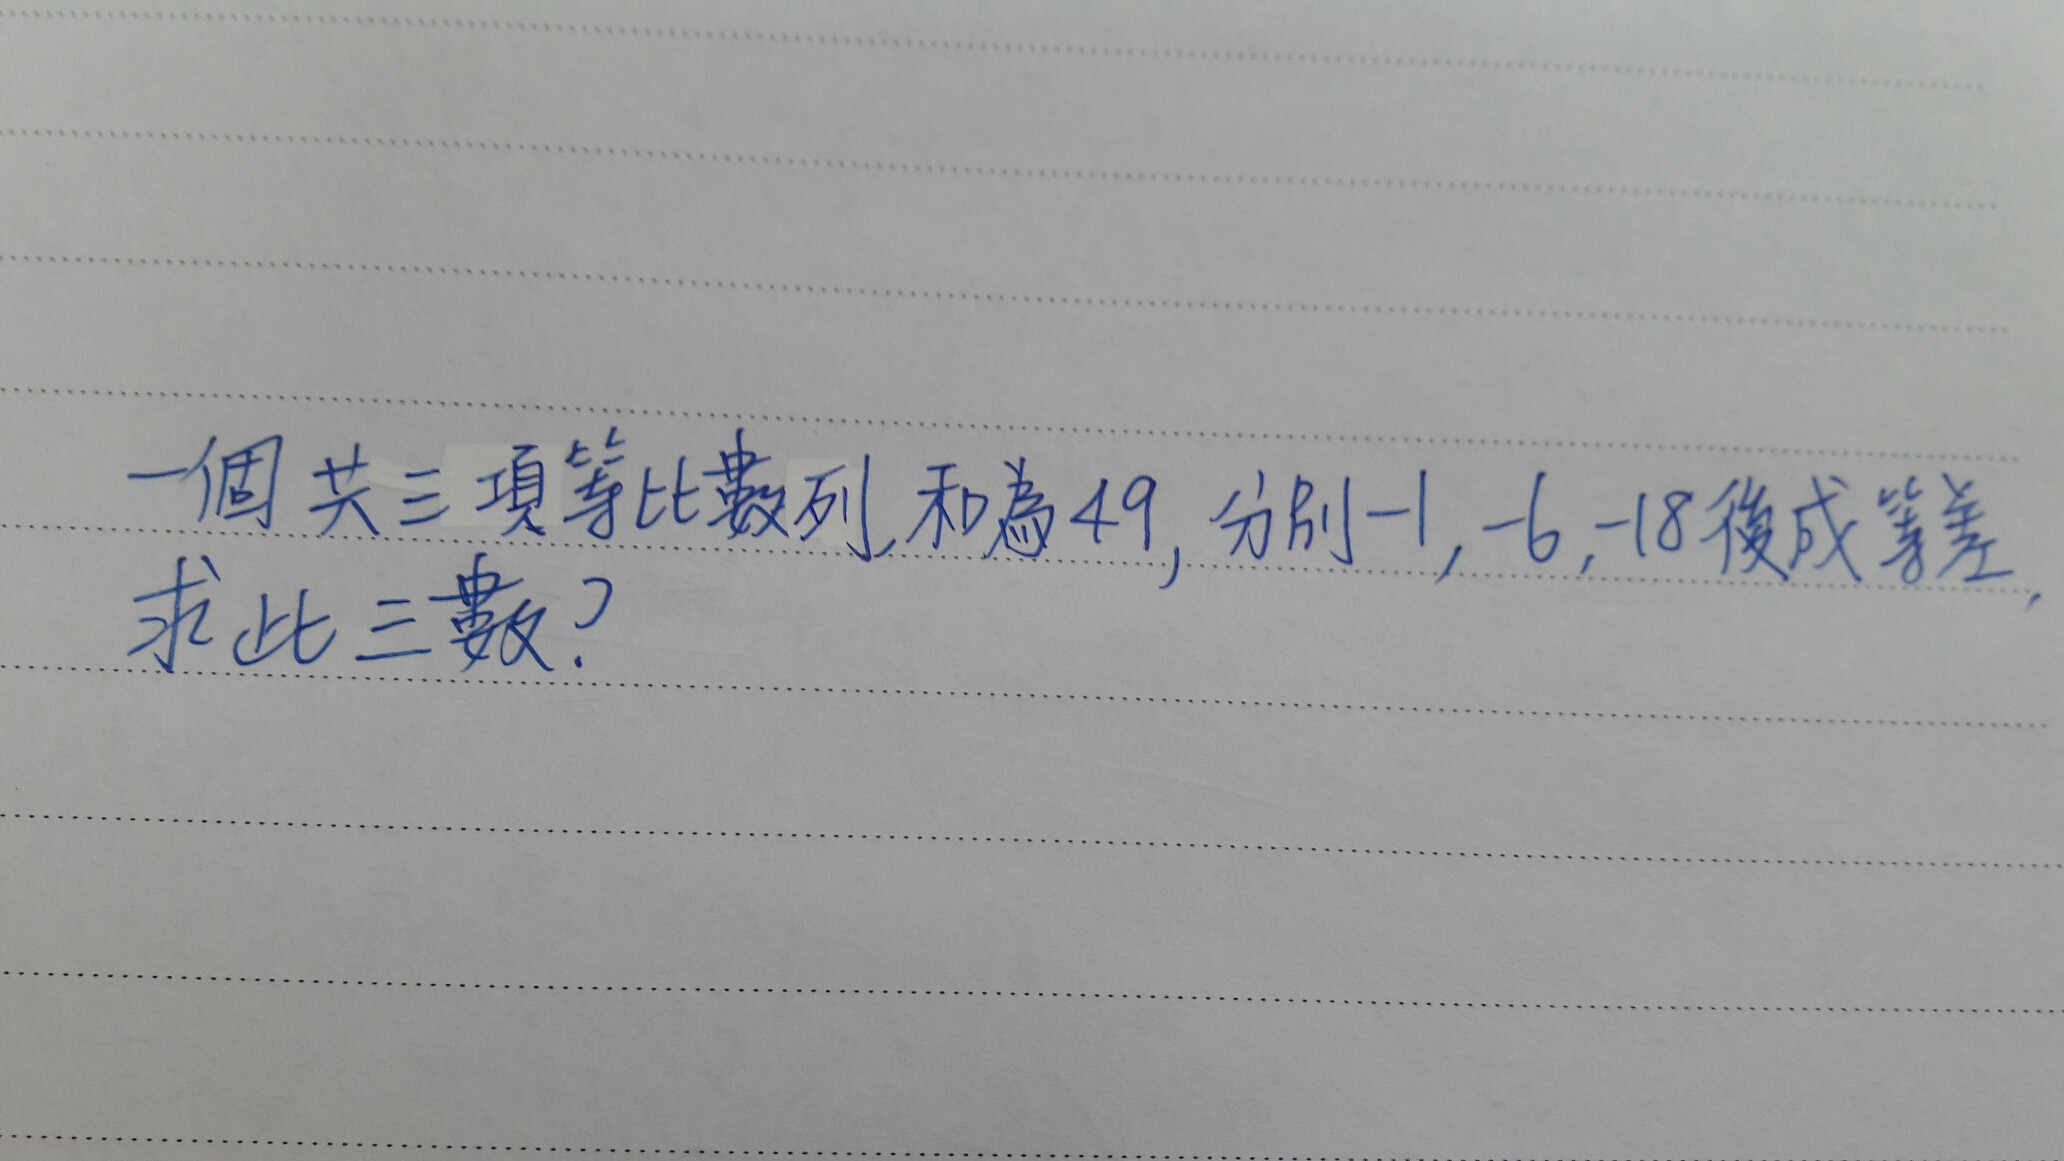 一個共三項等比數列,和為49,分別-1,-6,-18後成等差,
求此三數?